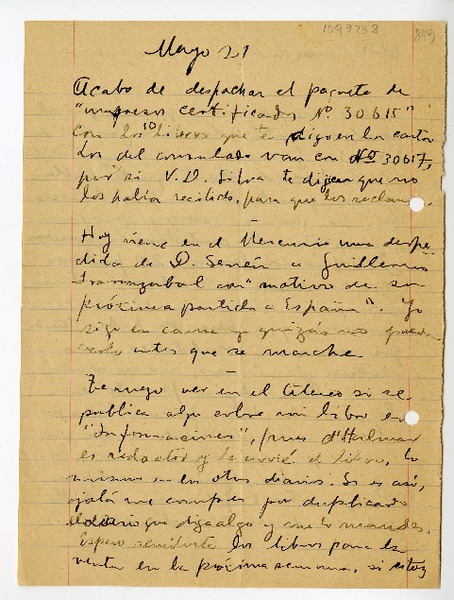 1099738 843
Mayo 21
Acabo de despachar el paquete de
"impresos certificados Nº. 30615"
con los 10 libros que te digo en la carta
Los del consulado van con Nº 30617,
por si V.D. Silva te dijera que no
los había recibido, para que los reclame.
Hoy viene en el Mercurio una despe
dida de D. Senén a Guillermo
con "motivo de su
próxima partida a España". Yo
sigo en cama y quizás no pueda
verlo antes que se marche.
Te ruego ver en el Ateneo si se
publica algo sobre mi libro en
"Informaciones", pues d'Halmar
es redactor y le envié el libro, lo
mismo en los otros diarios. Si es así,
ojalá me compres por duplicado
el diario que diga algo y me lo mandes.
Espero remitirte los libros para la
venta en la próxima semana, si estoy